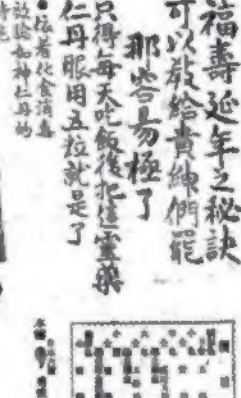 福壽延年之秘訣
可以教給貴縣們罷
那容易極了
只得每天吃飯後把這靈藥
仁丹服用五粒就是了
●依着化食消毒
効驗如神仁丹的